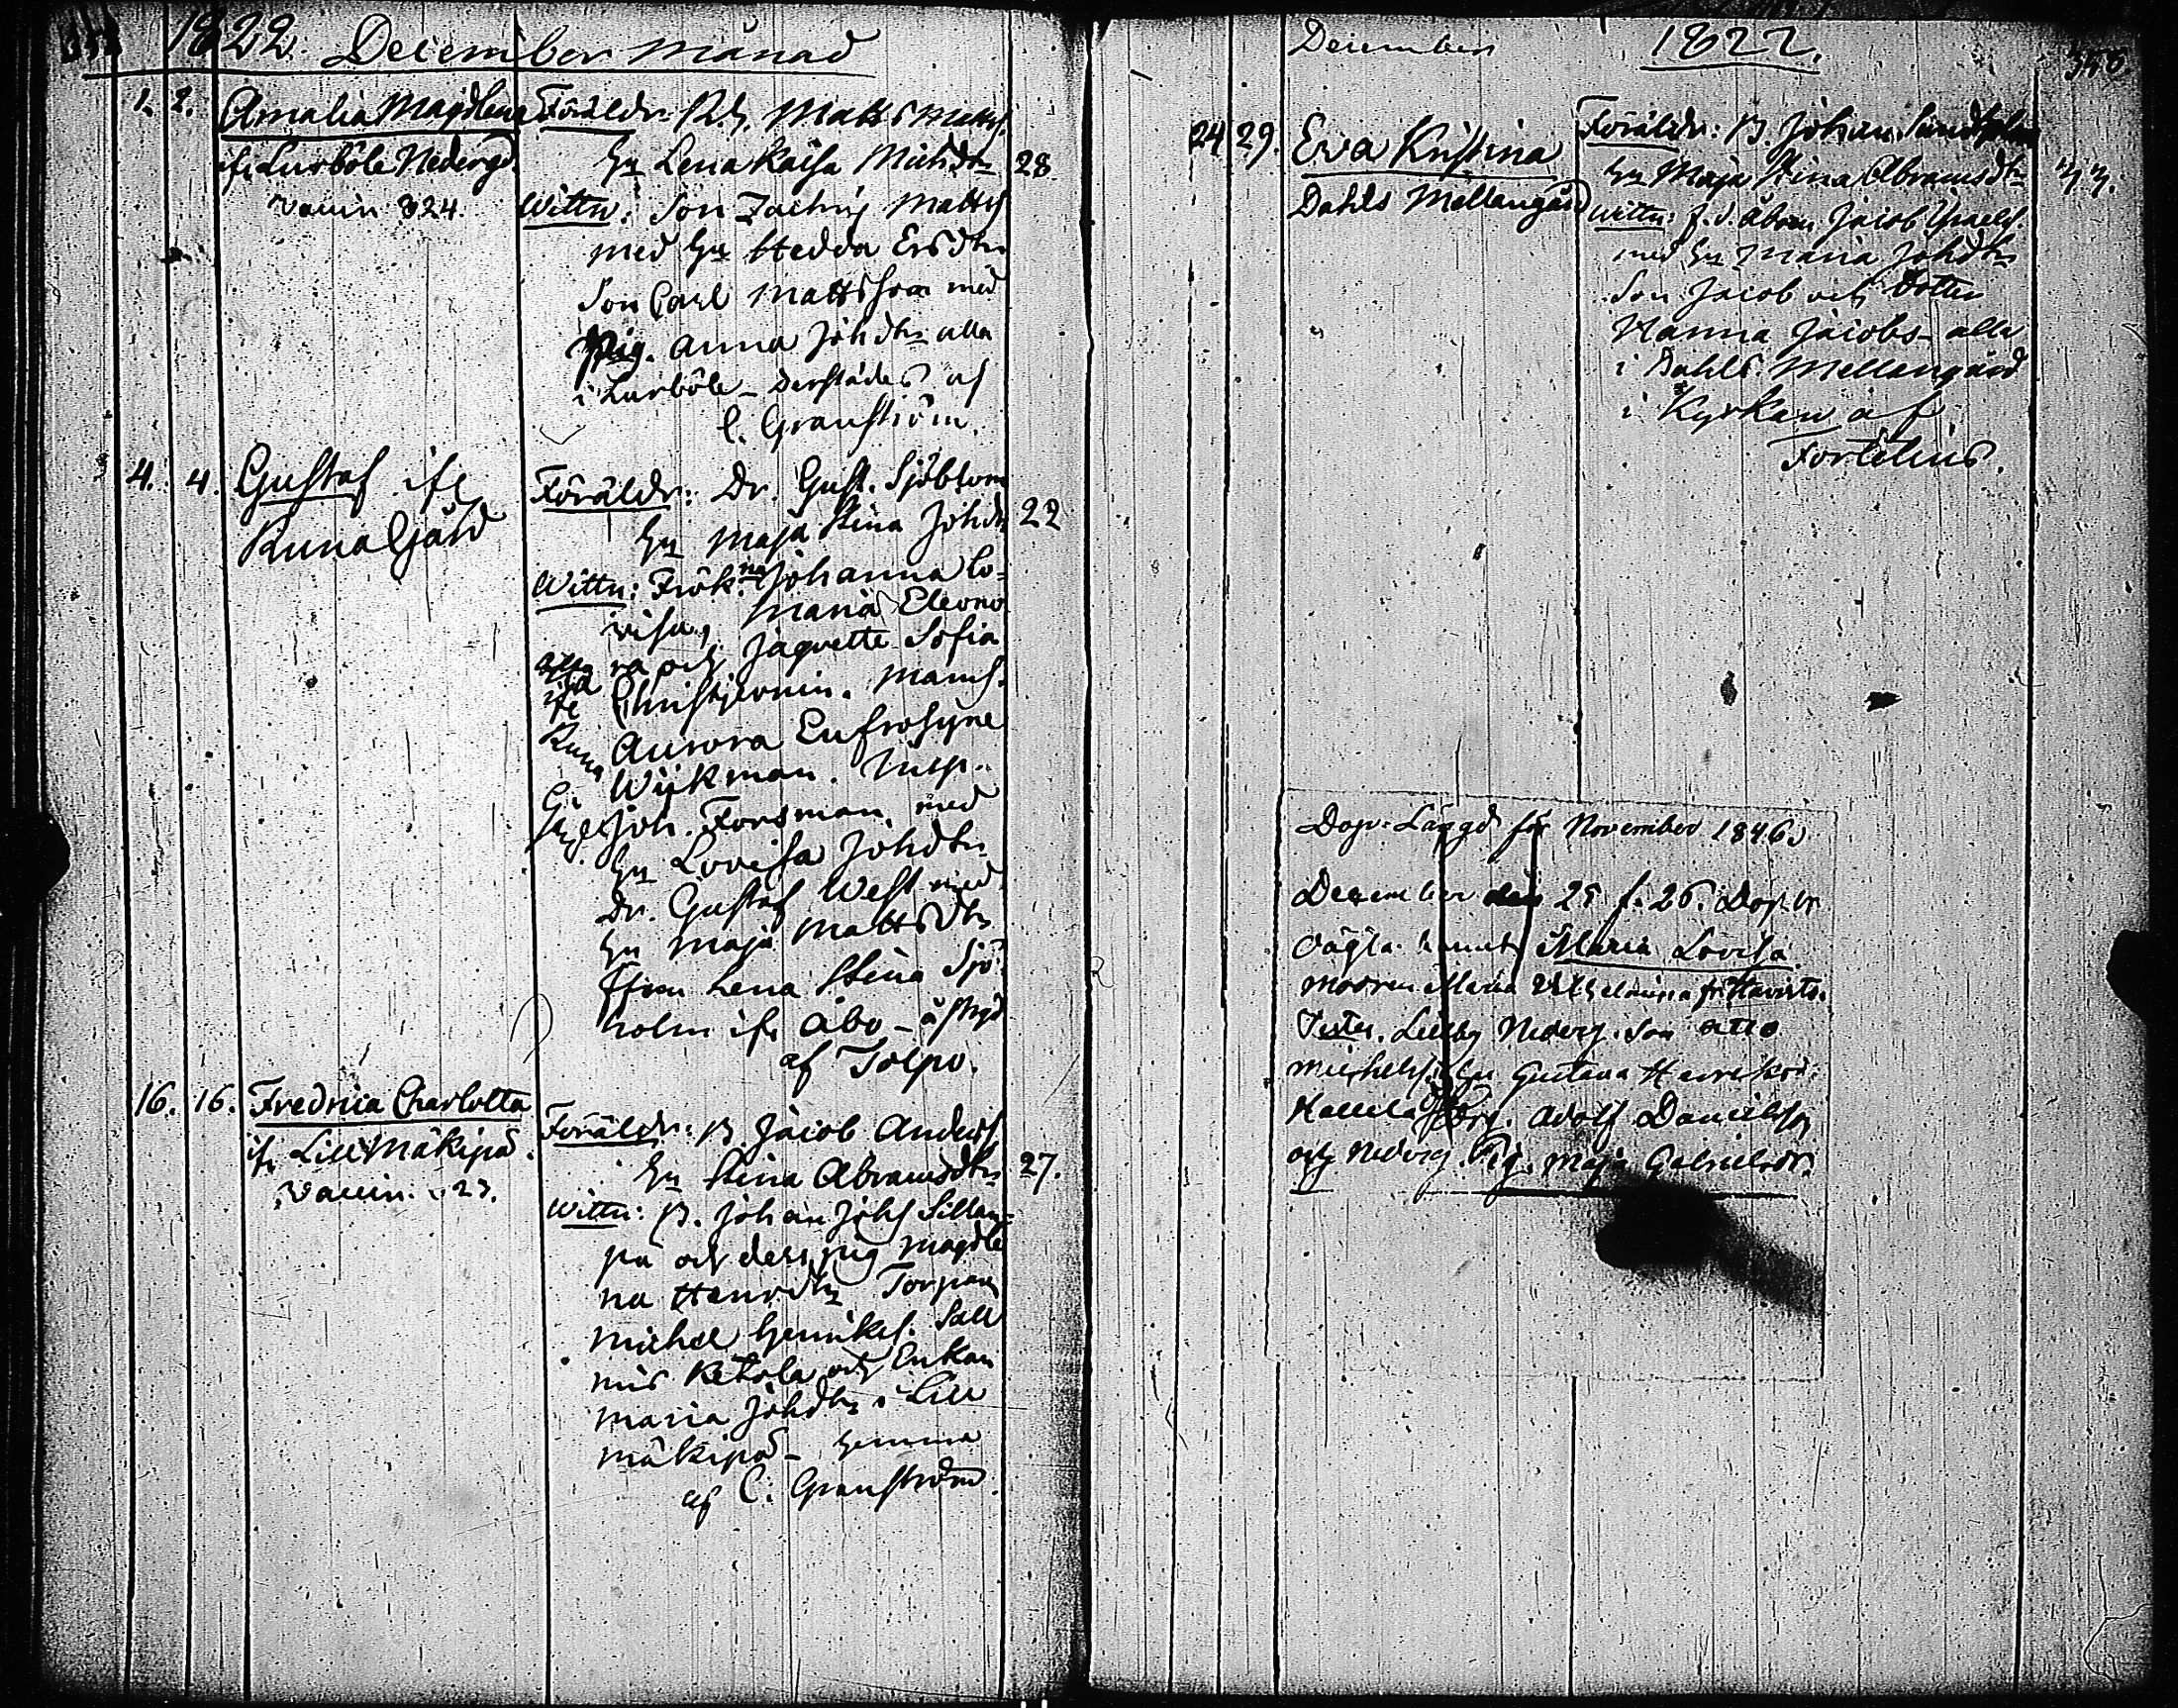 1822. December månad
1. 2. Amalia Magdlena
ifr. Lurböle Nederg.
Vaccin 824.
Föräldr: Matts Matts.
Hu Lena Kaisa Michdtr
28.
Wittn: Son Zachris Matts
med Hu Hedda Ersdtr
Son Carl Mattsson med
Pig. Anna Johdtr alla
i Lurböle - derstädes af
C. Granström.
4. 4. Gustaf ifr.
Runagård
Föräldr: Dr. Gust. Sjöblom
Hu Maja Stina Johdtr
22
Wittn: Frökna Johanna Lo-
visa, Maria Eleono
ra och Jaquette Sofia
Christjernin. Mams.
Aurora Eufrosyne
Wijkman. Insp.
Joh. Forsman, med
Hu Lovisa Johdtr
Dr. Gustaf West med
Hu Maja Mattsdtr
Lena Stina Sjö
holm ifr. Åbo -
af Tolpo.
16. 16. Fredrica Charlotta
ifr. Lill Mäkipä.
Vaccin. 23.
Föräldr: B. Jacob Anders
Hu Stina Abramsdtr
27.
Wittn: B. Johan Johs Sillan-
pä och dess pig Magdle
na Henrdtr Torpan
Michel Henriks. Sall
mis Ketola och Enkan
Maria Johdtr i Lill
mäkipä - hemma
af C. Granström.
December 1822.
24 29. Eva Kristina
Dahls Mellangård
Föräldr: B. Johan Sundholm
Hu Maja Stina Abramsdtr
33.
Wittn: f.d. Åbon Jacob Israels.
med Hu Maria Johdtr
Son Jacob och Dotter
Hanna Jacobs - alla
i Dahls Mellangård
i Kyrkan af
Fortelius.
Dop-Längd för November 1846.
December den 25 f. 26. Dop. br
oägta Maria Lovisa.
modren Maria Vilhelmina fr
Test. Lillby Nederg. Son Otto
Michels. Hu Gustava Henriksd.
Adolf Danielsson
och Nederg. Pig. Maja Gabrielsdr.